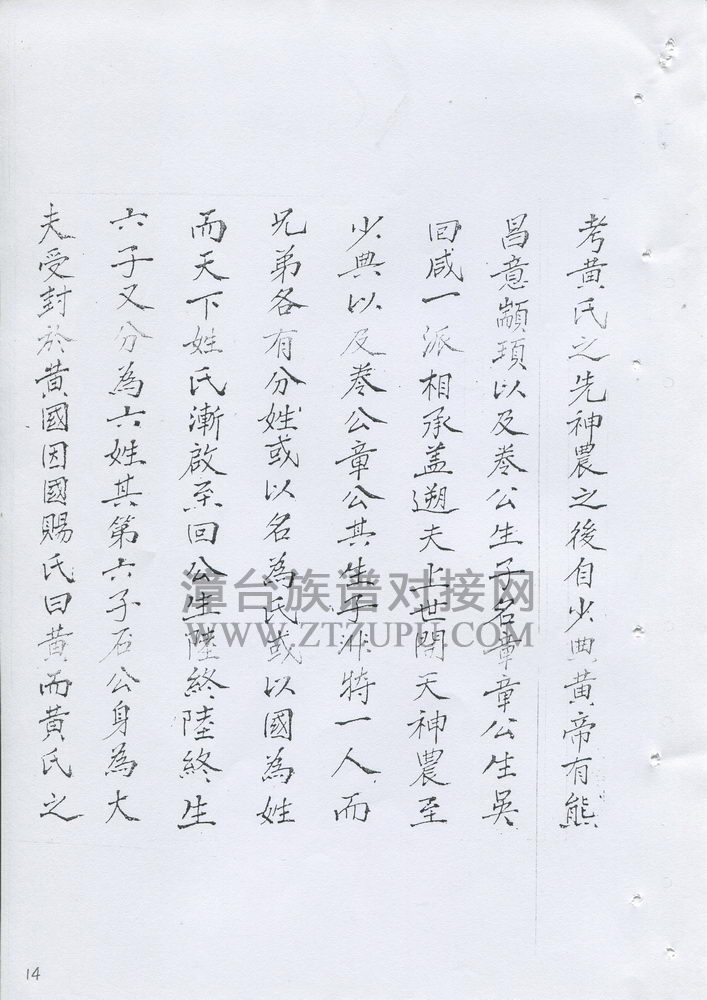 考黃氏之先神農之後自少典黃帝有熊
昌意顓頊以及卷公生子名章章公生吳
回咸一派相承蓋遡夫上世開天神農至
少典以及卷公章公其生子非特一人而
兄弟各有分姓或以名為氏或以國為姓
而天下姓氏漸啟至回公生陸終陸終生
六子又分為六姓其第六子石公身為大
夫受封於黃國因國賜氏曰黃而黃氏之
漳台族谱对接网
WWW.ZTZUPU.COM
14